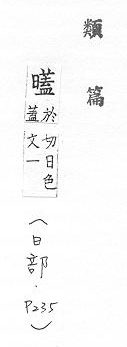 類篇
於切日色
蓋文一
(日部.P235)